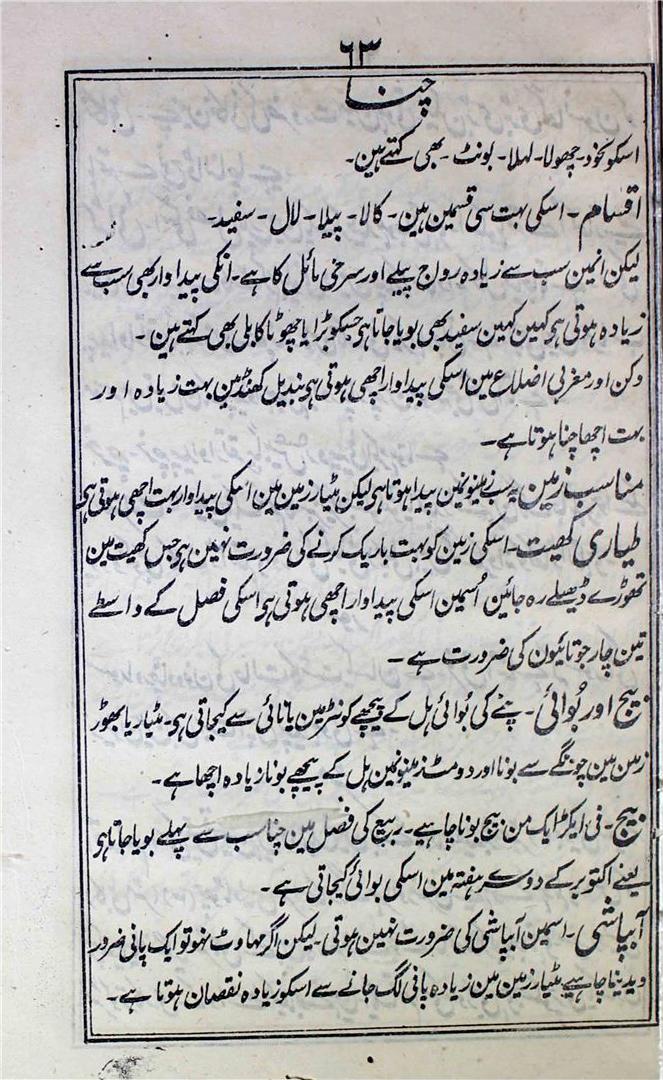 ۶۳
چنا
اسکو نخود۔ چھولا۔ لہلا۔ بونٹ۔ بھی کہتے ہین۔
اقسام۔ اسکی بہت سی قسمین ہین۔ کالا۔ پیلا۔ لال۔ سفید۔
لیکن انمین سب سے زیادہ رواج پیلے اور سرخی مائل کا ہے۔ انکی پیداوار بھی سب سے
زیادہ ہوتی ہی کہین کہین سفید بھی بویا جاتا ہی جسکو بڑا یا چھوٹا کابلی بھی کہتے ہین۔
دکن اور مغربی اضلاع مین اسکی پیداوار اچھی ہوتی ہی بندیل کھنڈ مین بہت زیادہ اور
بہت اچھا چنا ہوتا ہے۔
مناسب زمین یہ سب زمینونمین پیدا ہوتا ہی لیکن مٹیار زمین مین اسکی پیداوار بہت اچھی ہوتی ہی
طیاری کھیت۔ اسکی زمین کو بہت باریک کرنے کی ضرورت نہین ہی جس کھیت مین
تھوڑے ڈھیلے رہ جائین اُسمین اسکی پیداوار اچھی ہوتی ہی اسکی فصل کے واسطے
تین چار جوتائیون کی ضرورت ہے۔
بیج اور بُوائی۔ چنے کی بُوائی ہل کے پیچھے کونٹر مین یا نائی سے کیجاتی ہی۔ مٹیار یا بھوڑ
زمین مین چونگے سے بونا اور دومٹ زمینونمین ہل کے پیچھے بونا زیادہ اچھا ہے۔
بیج۔ فی ایکڑ ایک من بیج بونا چاہیے۔ ربیع کی فصل مین چنا سب سے پہلے بویا جاتا ہی
یعنے اکتوبر کے دوسرے ہفتہ مین اسکی بوائی کیجاتی ہے۔
آبپاشی۔ اسمین آبپاشی کی ضرورت نہین ہوتی۔ لیکن اگر مہاوٹ نہو تو ایک پانی ضرور
دیدینا چاہیے مٹیار زمین مین زیادہ پانی لگ جانے سے اسکو زیادہ نقصان ہوتا ہے۔